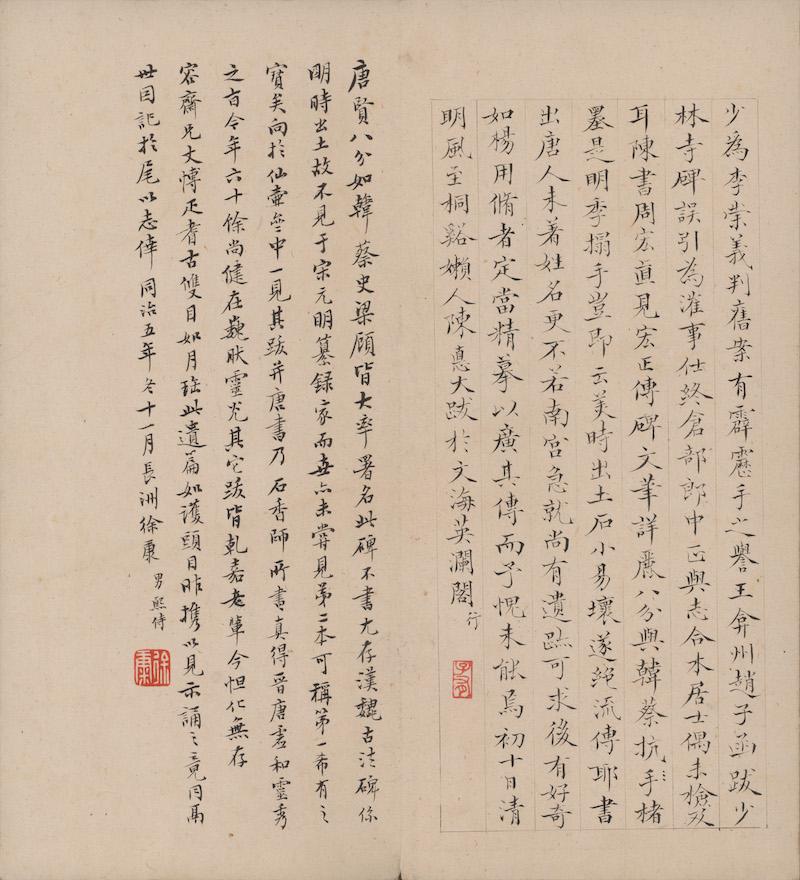 少為李崇義判舊案有霹靂手之譽王弇州趙子函跋少
林寺碑誤引為漼事仕終倉部郎中正與志合木居士偶未檢及
耳陳書周宏直見宏正傳碑文華詳麗八分與韓蔡抗手楮
墨是明季搨手豈即云美時出土石小易壞遂絕流傳耶書
出唐人未著姓名更不若南宮急就尚有遺跡可求後有好奇
如楊用脩者定當精摹以廣其傳而予愧未能焉初十日清
明風至桐谿嬾人陳憙大跋於文海英瀾閣行
唐賢八分如韓蔡史梁顧皆大率署名此碑不書尤存漢魏古法碑係
明時出土故不見于宋元明纂錄家而世亦未嘗見第二本可稱第一希有之
寶矣向於仙壺𡌶中一見其跋并唐書乃石香師所書真得晉唐虛和靈秀
之旨今年六十餘尚健在巍肰靈光其它跋皆乾嘉老輩今怛化無存
容齋兄丈愽疋耆古雙目如月珤此遺篇如護頭目昨携以見示誦之竟因為
世因記於尾以志倖同治五年冬十一月長洲徐康男熙侍
徐康